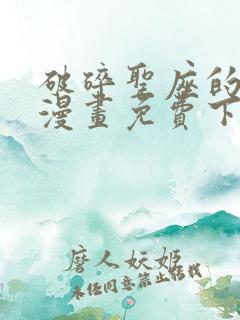 破碎聖座的
漫畫免費下
磨人妖姬
未经同意禁止转载